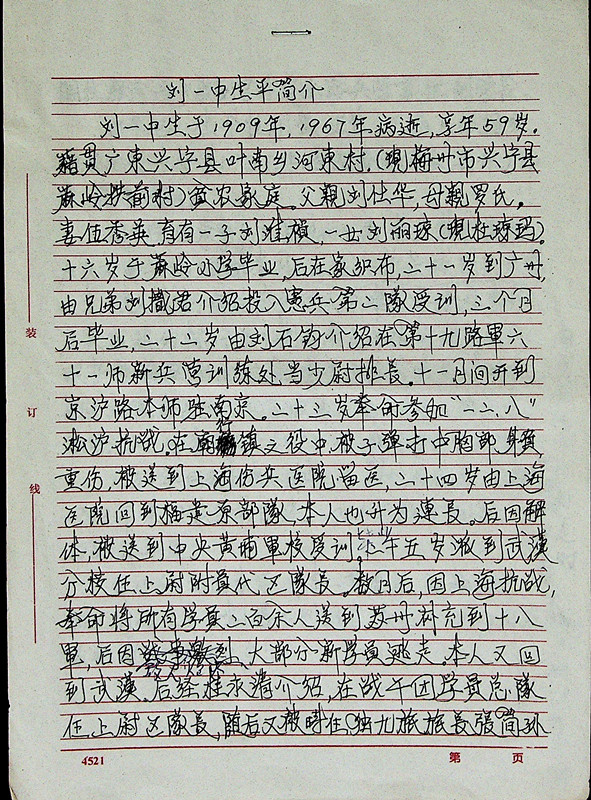 刘一中生平简介
刘一中生于1909年,1967年病逝,享年59岁。
籍贯广东兴宁县叶南乡河东村,(现梅州市兴宁县
麻岭 村)贫农家庭。父親刘仕华,母親罗氏。
妻伍秀英,育有一子刘 ,一女刘丽琼(现杜琼玛)。
十六岁于麻岭小学毕业,后在家织布,二十一岁到广州,
由兄弟刘 君介绍投入憲兵第二隊受训,三个月
后毕业,二十二岁由刘石钧介绍在第十九路軍六
十一师新兵营训练处当少尉排長。十一月间开到
京沪路,本师驻南京。二十三岁奉命参加“一二八”
淞沪抗战。在庙行镇之役中,被子弹打中胸部,身負
重伤,被送到上海伤兵医院留医,二十四岁由上海
医院回到福建原部隊,本人也升为連長。后因解
体,被送到中央黄埔軍校受训,二十五岁派到武漢
分校任上尉附員代区隊長。数月后,因上海抗战,
奉命将所有学員二百余人送到苏州补充到十八
軍,后因 ,大部分新学員逃走。本人又回
到武漢。后经桂永清介绍,在战干团学員总隊
任上尉区隊長,随后又被 独九旅旅長張简孙
装
订
线
4521
第 页